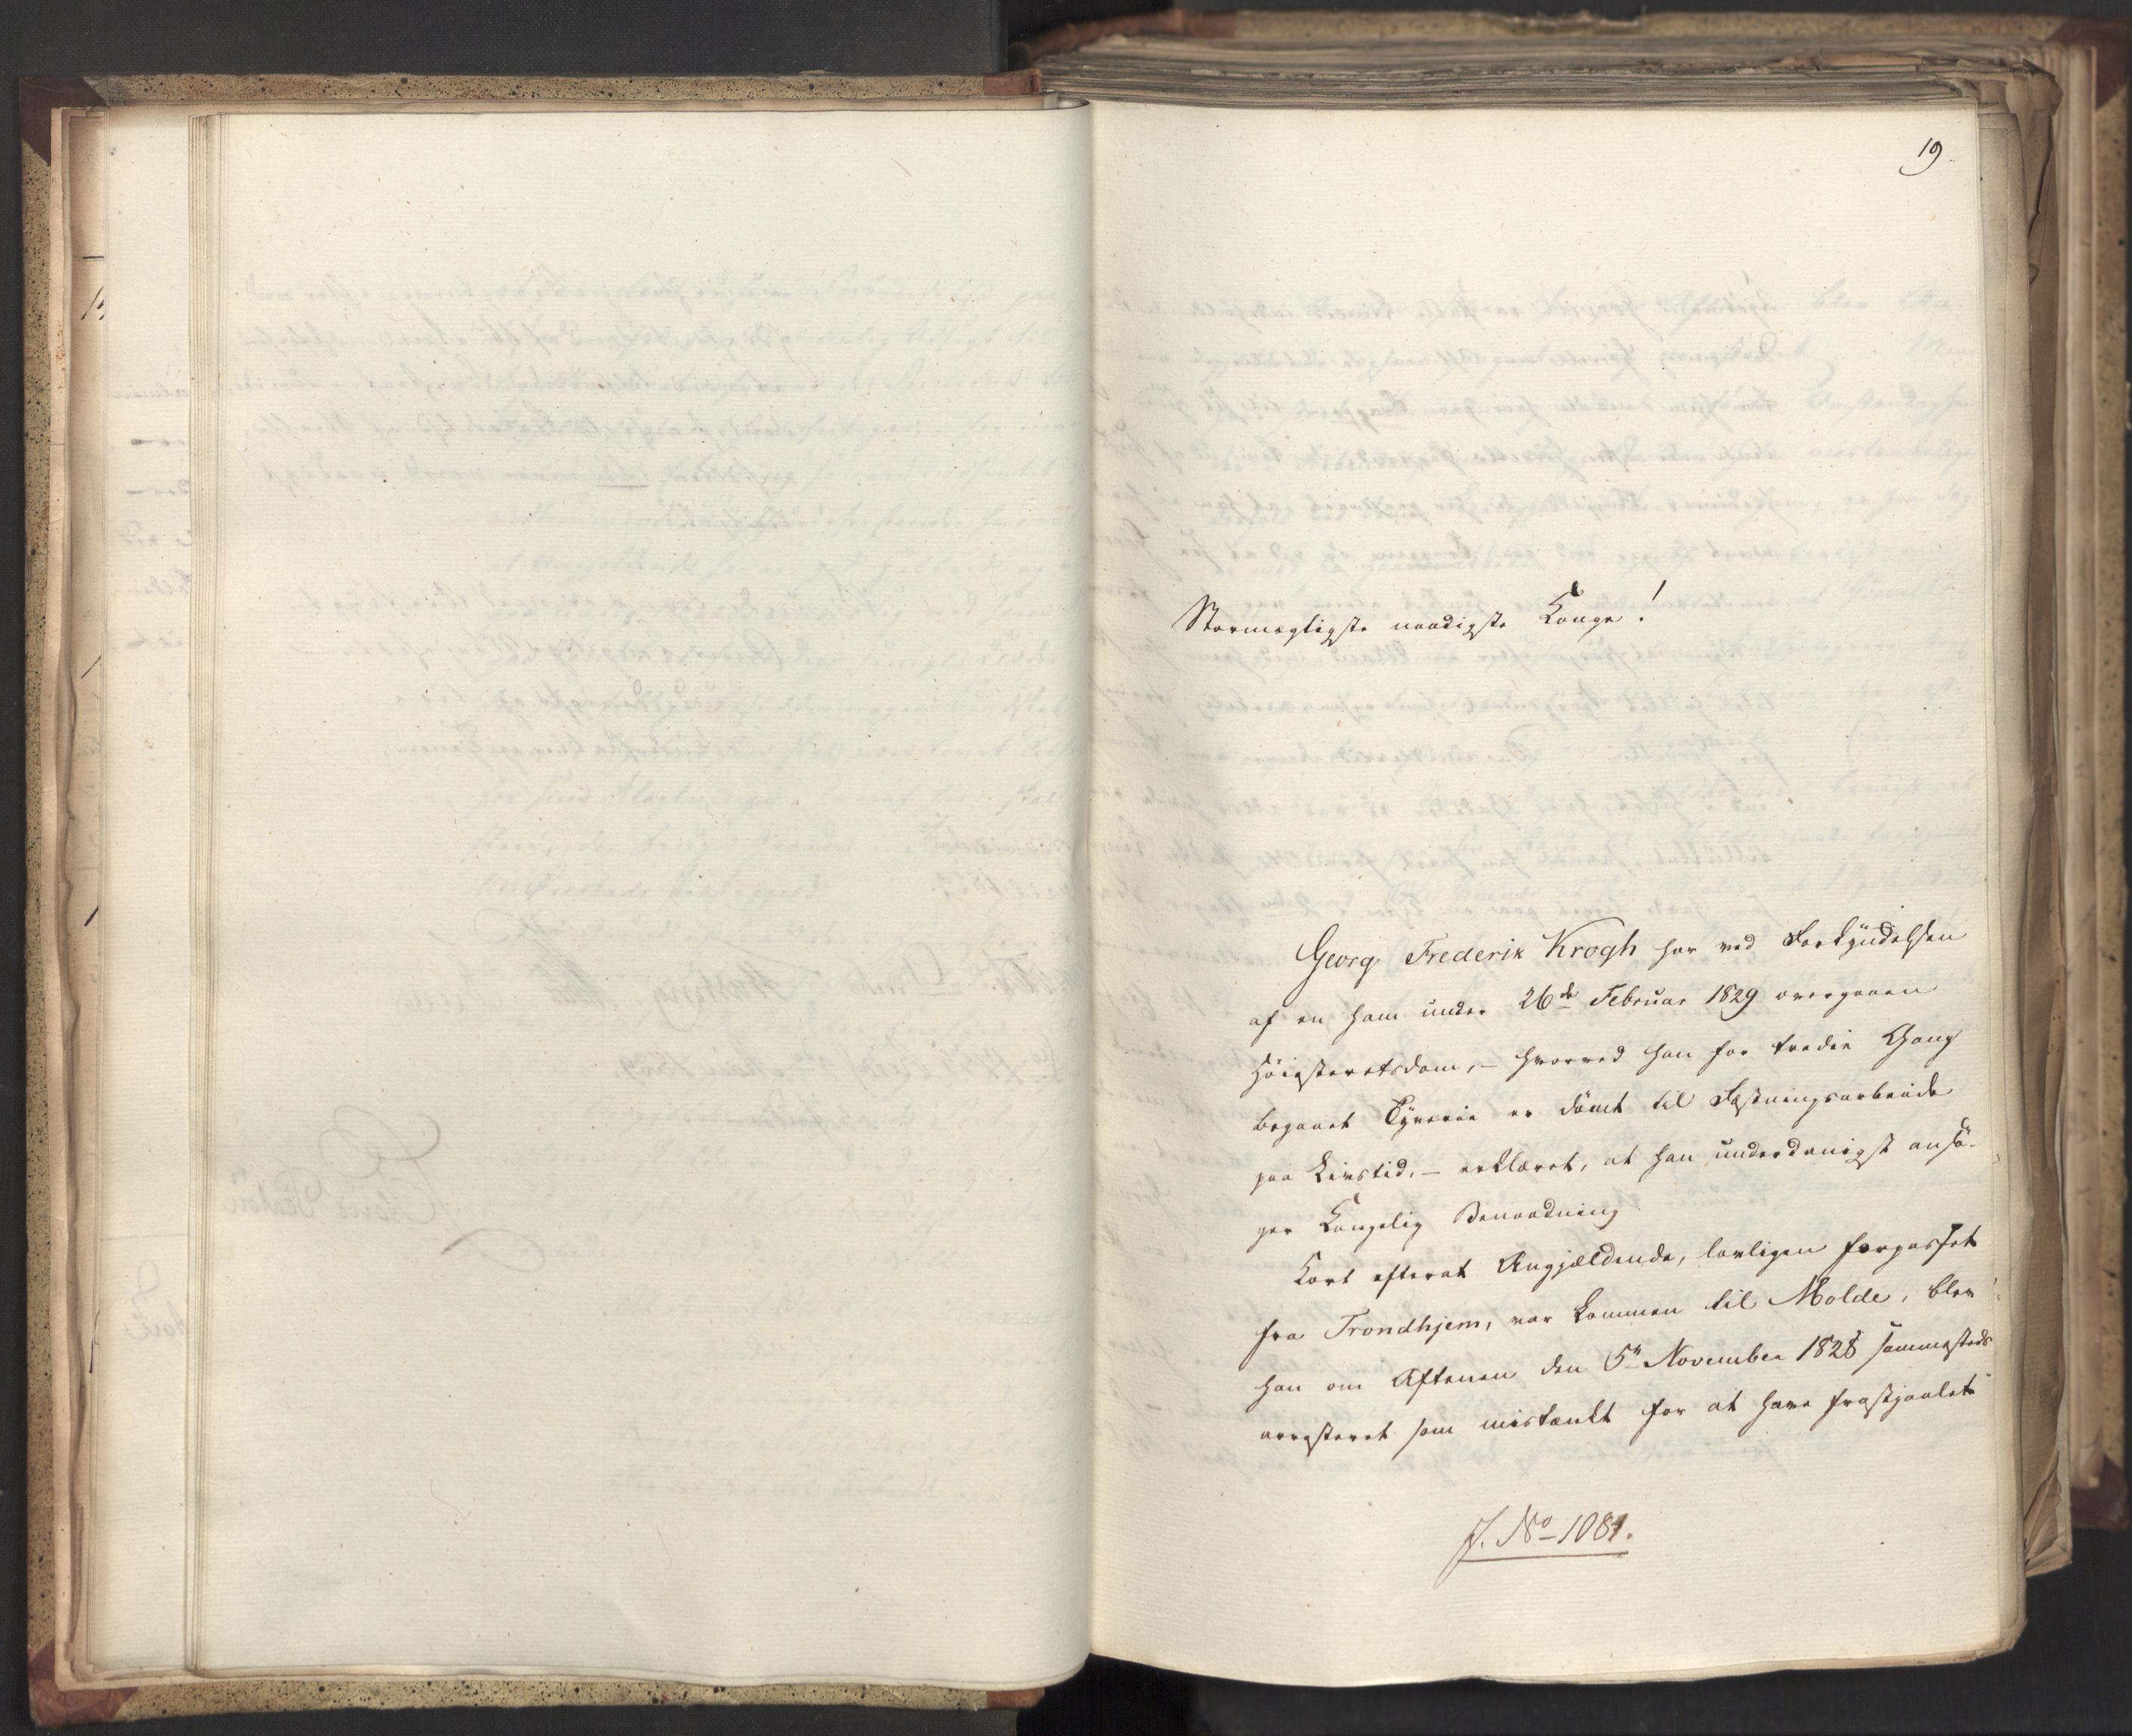 19.
Stormægtigste naadigste Konge!
Georg Frederik Krogh har ved Forkyndelsen
af en ham under 26de Februar 1829 overgaaen
Höiesteretsdom, – hvorved han for tredie Gang
begaaet Tyverie er dömt til Fæstningsarbeide
paa Livstid, – erklæret, at han underdanigst ansö-
ger Kongelig Benaadning.
Kort efterat Angjældende, lovligen forpasset
fra Trondhjem, var kommen til Molde, blev
han om Aftenen den 5te November 1828 sammesteds
arresteret som mistænkt for at have frastjaalet
J. No 1081.